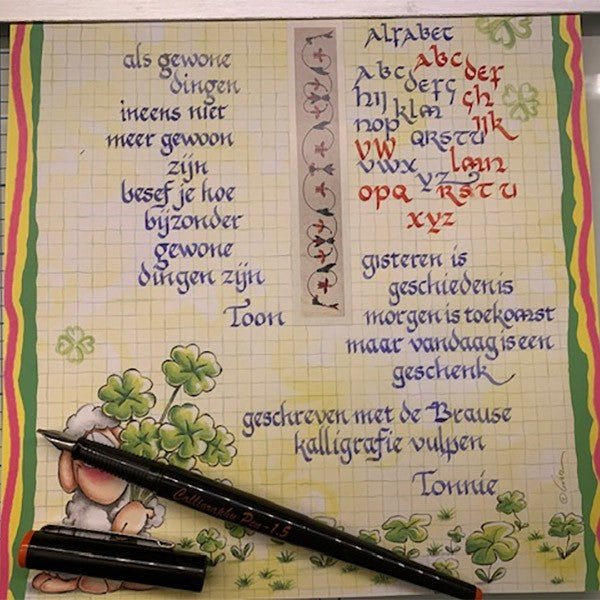 als gewone
dingen
ineens niet
meer gewoon
zijn
besef je hoe
bijzonder
gewone
dingen zijn
Toon
alfabet
abc
abc
def
defg
hij
gh
klm
nop
ijk
qrstu
vw
vwx
lmn
yz
opq
rstu
xyz
gisteren is
geschiedenis
morgen is toekomst
maar vandaag is een
geschenk
geschreven met de Brause
kalligrafie vulpen
Tonnie
Calligraphy Pen - 1.5